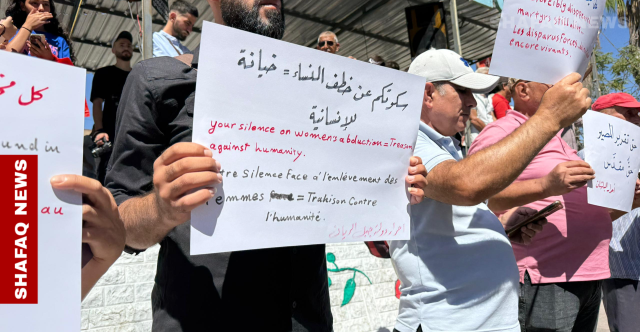 SHAFAQ NEWS
SHAFAQ NEWS
كل
und in
au
سكوتكم عن خطف النساء = خيانة
للإنسانية
your silence on women's abduction = Treason
against humanity.
tre Silence Face à l'enlèvement des
Femmes = Trahison Contre
l'humanité.
forcibly
martyrs still alive.
Les disparus forcés
encore vivants.
حق تقرير المصير
حق مقدس